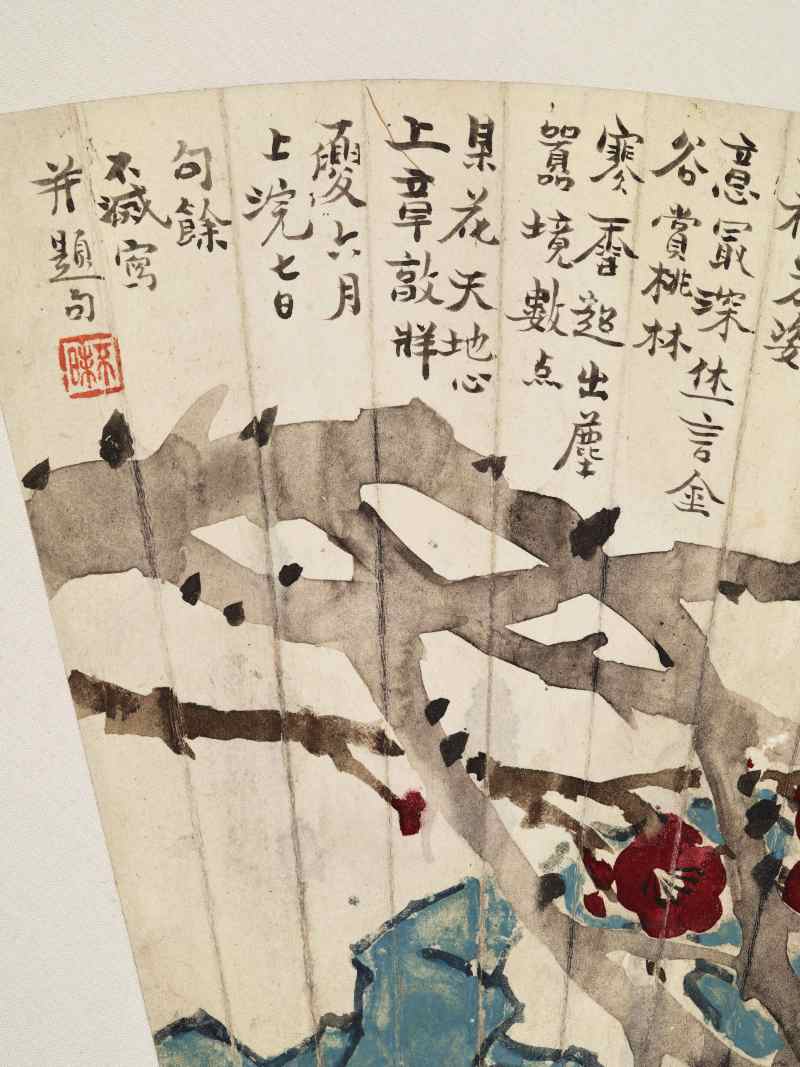 姿
意冣深烋言金
谷賞桃林
寒香超出塵
囂境數点
呆花天地心
上章敦牂
夏六月
上浣七日
句餘
不滅寫
并題句